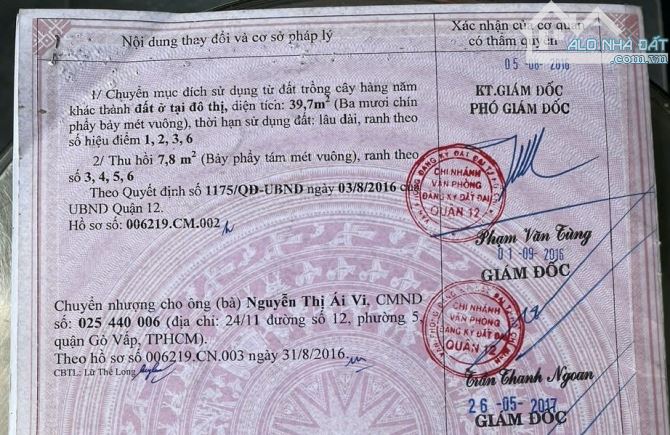 Nội dung thay đổi và cơ sở pháp lý
Xác nhận của cơ quan
có thẩm quyền
ALO NHÀ ĐẤT
.com.vn
05-08-2016
1/ Chuyển mục đích sử dụng từ đất trồng cây hàng năm
khác thành đất ở tại đô thị, diện tích: 39,7m² (Ba mươi chín
phẩy bảy mét vuông), thời hạn sử dụng đất: lâu dài, ranh theo
số hiệu điểm 1, 2, 3, 6
2/ Thu hồi 7,8 m² (Bảy phẩy tám mét vuông), ranh theo số
3, 4, 5, 6
Theo Quyết định số 1175/QĐ-UBND ngày 03/8/2016 của
UBND Quận 12.
Hồ sơ số: 006219.CM.002
KT.GIÁM ĐỐC
PHÓ GIÁM ĐỐC
CHI NHÁNH
VĂN PHÒNG
ĐĂNG KÝ ĐẤT ĐAI
QUẬN 12
Phạm Văn Tùng
01-09-2016
GIÁM ĐỐC
Chuyển nhượng cho ông (bà) Nguyễn Thị Ái Vi, CMND
số: 025 440 006 (địa chỉ: 24/11 đường số 12, phường 5,
quận Gò Vấp, TPHCM).
Theo hồ sơ số 006219.CN.003 ngày 31/8/2016.
CBTL: Lữ Thế Long
CHI NHÁNH
VĂN PHÒNG
ĐĂNG KÝ ĐẤT ĐAI
QUẬN 12
Trần Thanh Ngoan
26-05-2017
GIÁM ĐỐC